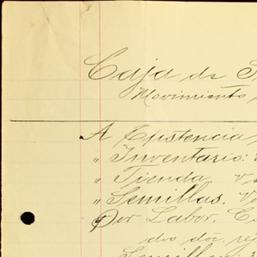 Caja de
Movimiento,
A Existencia
" Inventario:
" Tienda
" Semillas.
Por Labor.
dos
Semillas